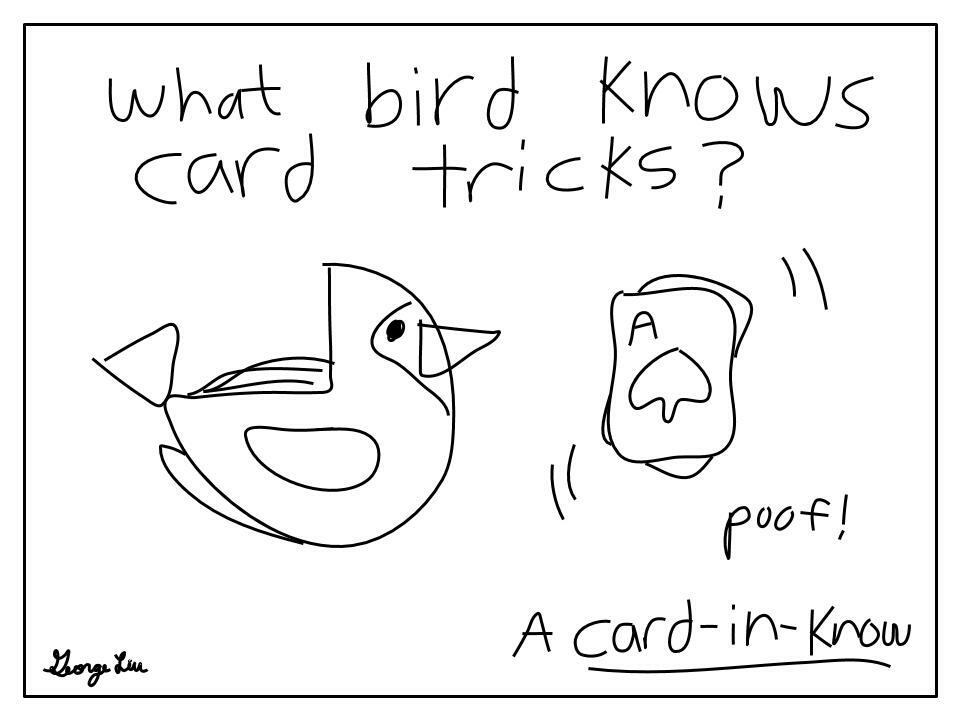 what bird knows
card tricks?
A
poof!
A card-in-know
George Liu